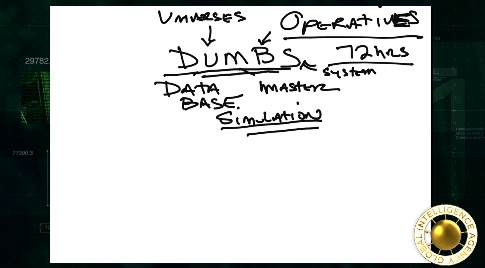 UNIVERSES
OPERATIVES
DUMBS
72hrs
system
DATA
master
BASE.
SimulATION
29782.
77390.3
GLOBAL INTELLIGENCE AGENCY